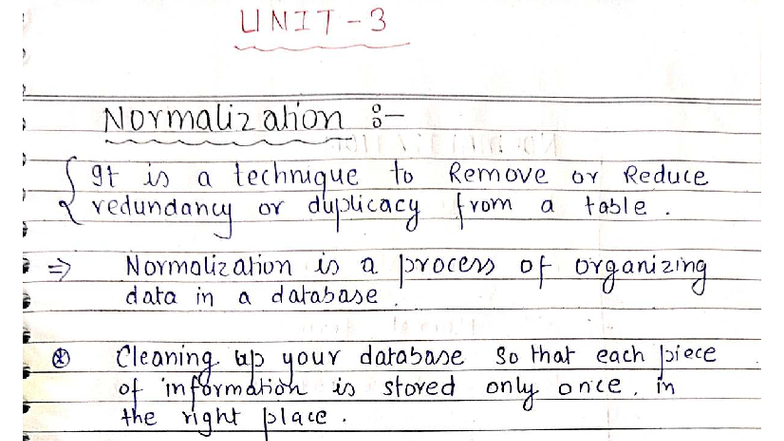 UNIT-3
Normalization :-
It is a technique to Remove or Reduce
redundancy or duplicacy from a table.
⇒ Normalization is a process of organizing
data in a database.
⊛ Cleaning up your database so that each piece
of information is stored only once, in
the right place.